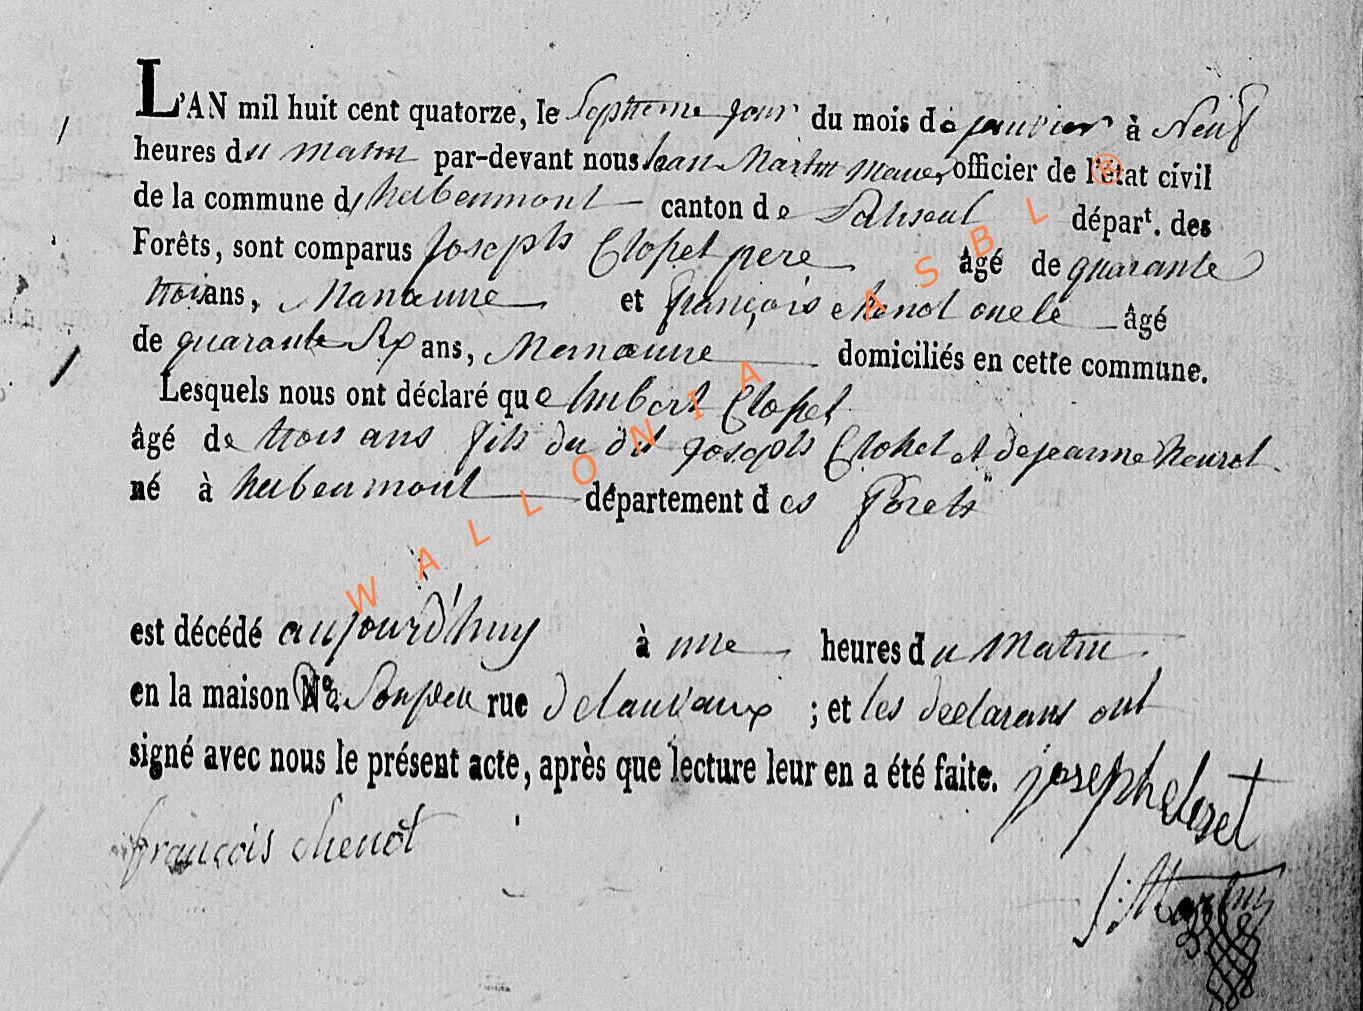 L'AN mil huit cent quatorze, le Septieme jour du mois de janvier à Neuf
heures du matin par-devant nous Jean Martin maire, officier de l'état civil
de la commune d'herbeumont canton de Paliseul départ. des
Forêts, sont comparus Joseph Closset pere âgé de quarante
trois ans, Manœuvre et françois chenot oncle âgé
de quarante Six ans, Manœuvre domiciliés en cette commune.
Lesquels nous ont déclaré que hubert Closset
âgé de trois ans fils du dit joseph Closset et de jeanne
né à herbeumont département des Forets
est décédé aujourd'huy à une heures du Matin
en la maison N° rue ; et les declarans ont
signé avec nous le présent acte, après que lecture leur en a été faite. joseph closet
françois chenot
J: Martin
WALLONIA ASBL ®